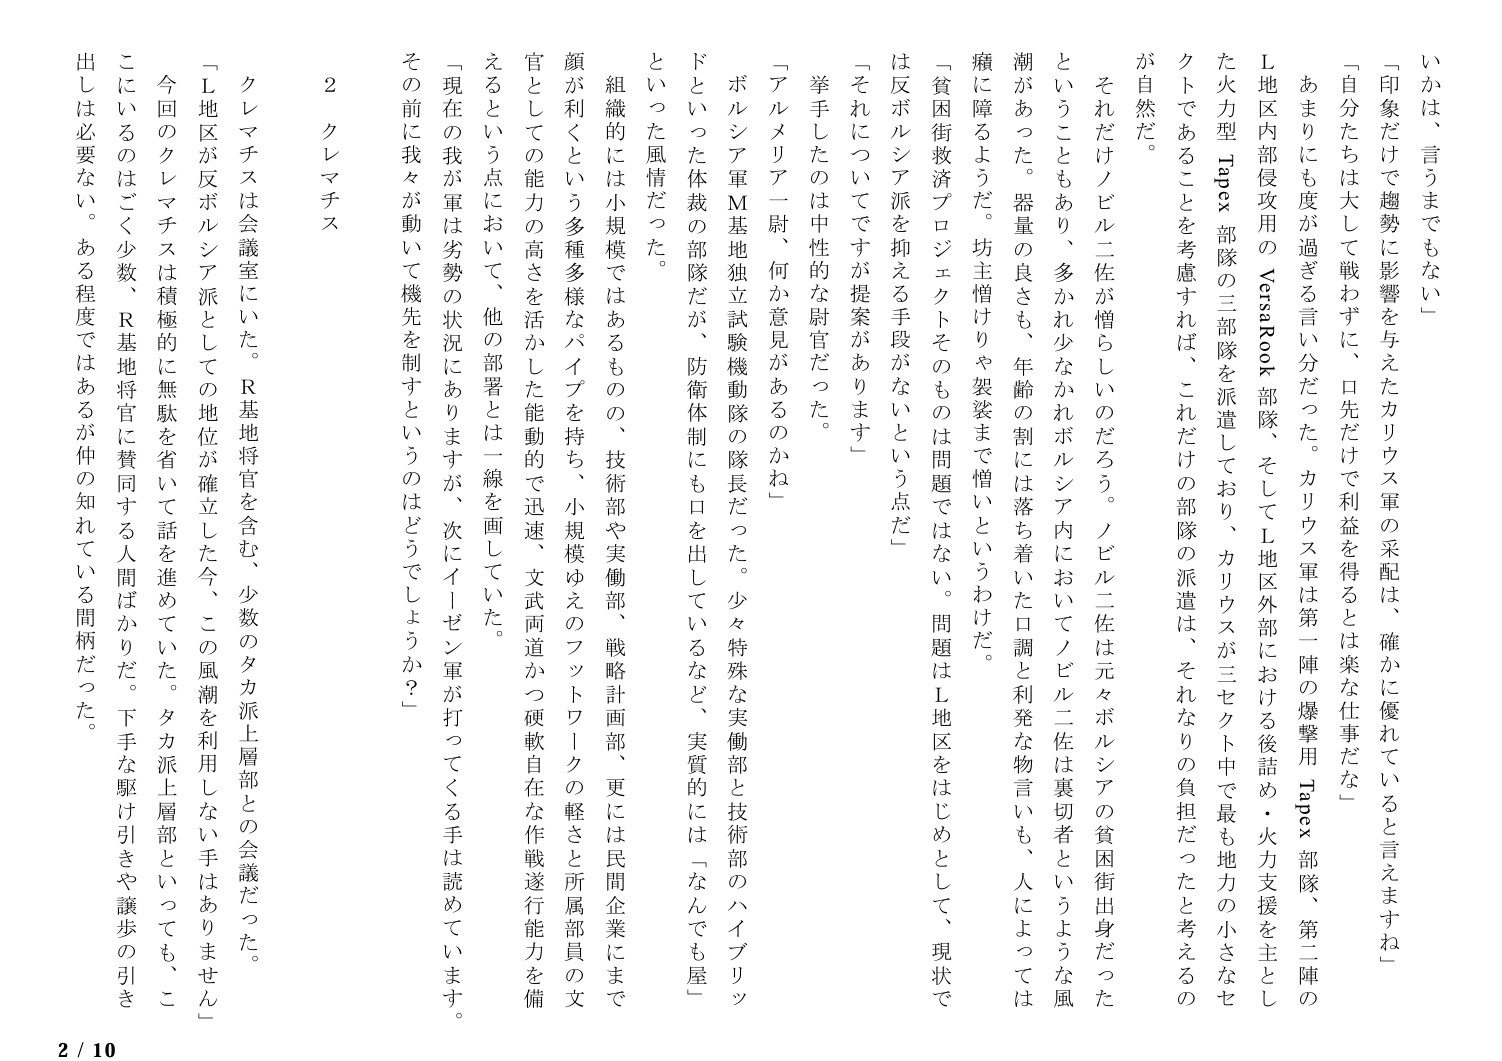 いかは、言うまでもない」
「印象だけで趨勢に影響を与えたカリウス軍の采配は、確かに優れていると言えますね」
「自分たちは大して戦わずに、口先だけで利益を得るとは楽な仕事だな」
　あまりにも度が過ぎる言い分だった。カリウス軍は第一陣の爆撃用 Tapex 部隊、第二陣の
L地区内部侵攻用の VersaRook 部隊、そしてL地区外部における後詰め・火力支援を主とし
た火力型 Tapex 部隊の三部隊を派遣しており、カリウスが三セクト中で最も地力の小さなセ
クトであることを考慮すれば、これだけの部隊の派遣は、それなりの負担だったと考えるの
が自然だ。
　それだけノビル二佐が憎らしいのだろう。ノビル二佐は元々ボルシアの貧困街出身だった
ということもあり、多かれ少なかれボルシア内においてノビル二佐は裏切者というような風
潮があった。器量の良さも、年齢の割には落ち着いた口調と利発な物言いも、人によっては
癪に障るようだ。坊主憎けりゃ袈裟まで憎いというわけだ。
「貧困街救済プロジェクトそのものは問題ではない。問題はL地区をはじめとして、現状で
は反ボルシア派を抑える手段がないという点だ」
「それについてですが提案があります」
　挙手したのは中性的な尉官だった。
「アルメリア一尉、何か意見があるのかね」
　ボルシア軍M基地独立試験機動隊の隊長だった。少々特殊な実働部と技術部のハイブリッ
ドといった体裁の部隊だが、防衛体制にも口を出しているなど、実質的には「なんでも屋」
といった風情だった。
　組織的には小規模ではあるものの、技術部や実働部、戦略計画部、更には民間企業にまで
顔が利くという多種多様なパイプを持ち、小規模ゆえのフットワークの軽さと所属部員の文
官としての能力の高さを活かした能動的で迅速、文武両道かつ硬軟自在な作戦遂行能力を備
えるという点において、他の部署とは一線を画していた。
「現在の我が軍は劣勢の状況にありますが、次にイーゼン軍が打ってくる手は読めています。
その前に我々が動いて機先を制すというのはどうでしょうか？」
2　クレマチス
　クレマチスは会議室にいた。R基地将官を含む、少数のタカ派上層部との会議だった。
「L地区が反ボルシア派としての地位が確立した今、この風潮を利用しない手はありません」
　今回のクレマチスは積極的に無駄を省いて話を進めていた。タカ派上層部といっても、こ
こにいるのはごく少数、R基地将官に賛同する人間ばかりだ。下手な駆け引きや譲歩の引き
出しは必要ない。ある程度ではあるが仲の知れている間柄だった。
2 / 10